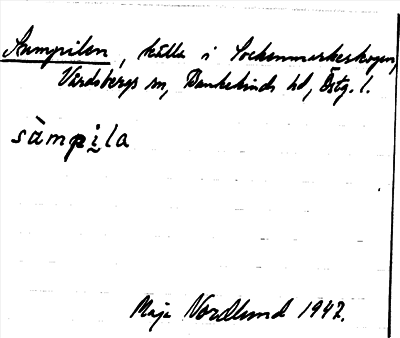 Sampilen, källa i Sockenmarkeskogen,
Vårdsbergs sn, Bankekinds hd, Östg. l.
sàmpi̥la
Maja Nordlund 1947.